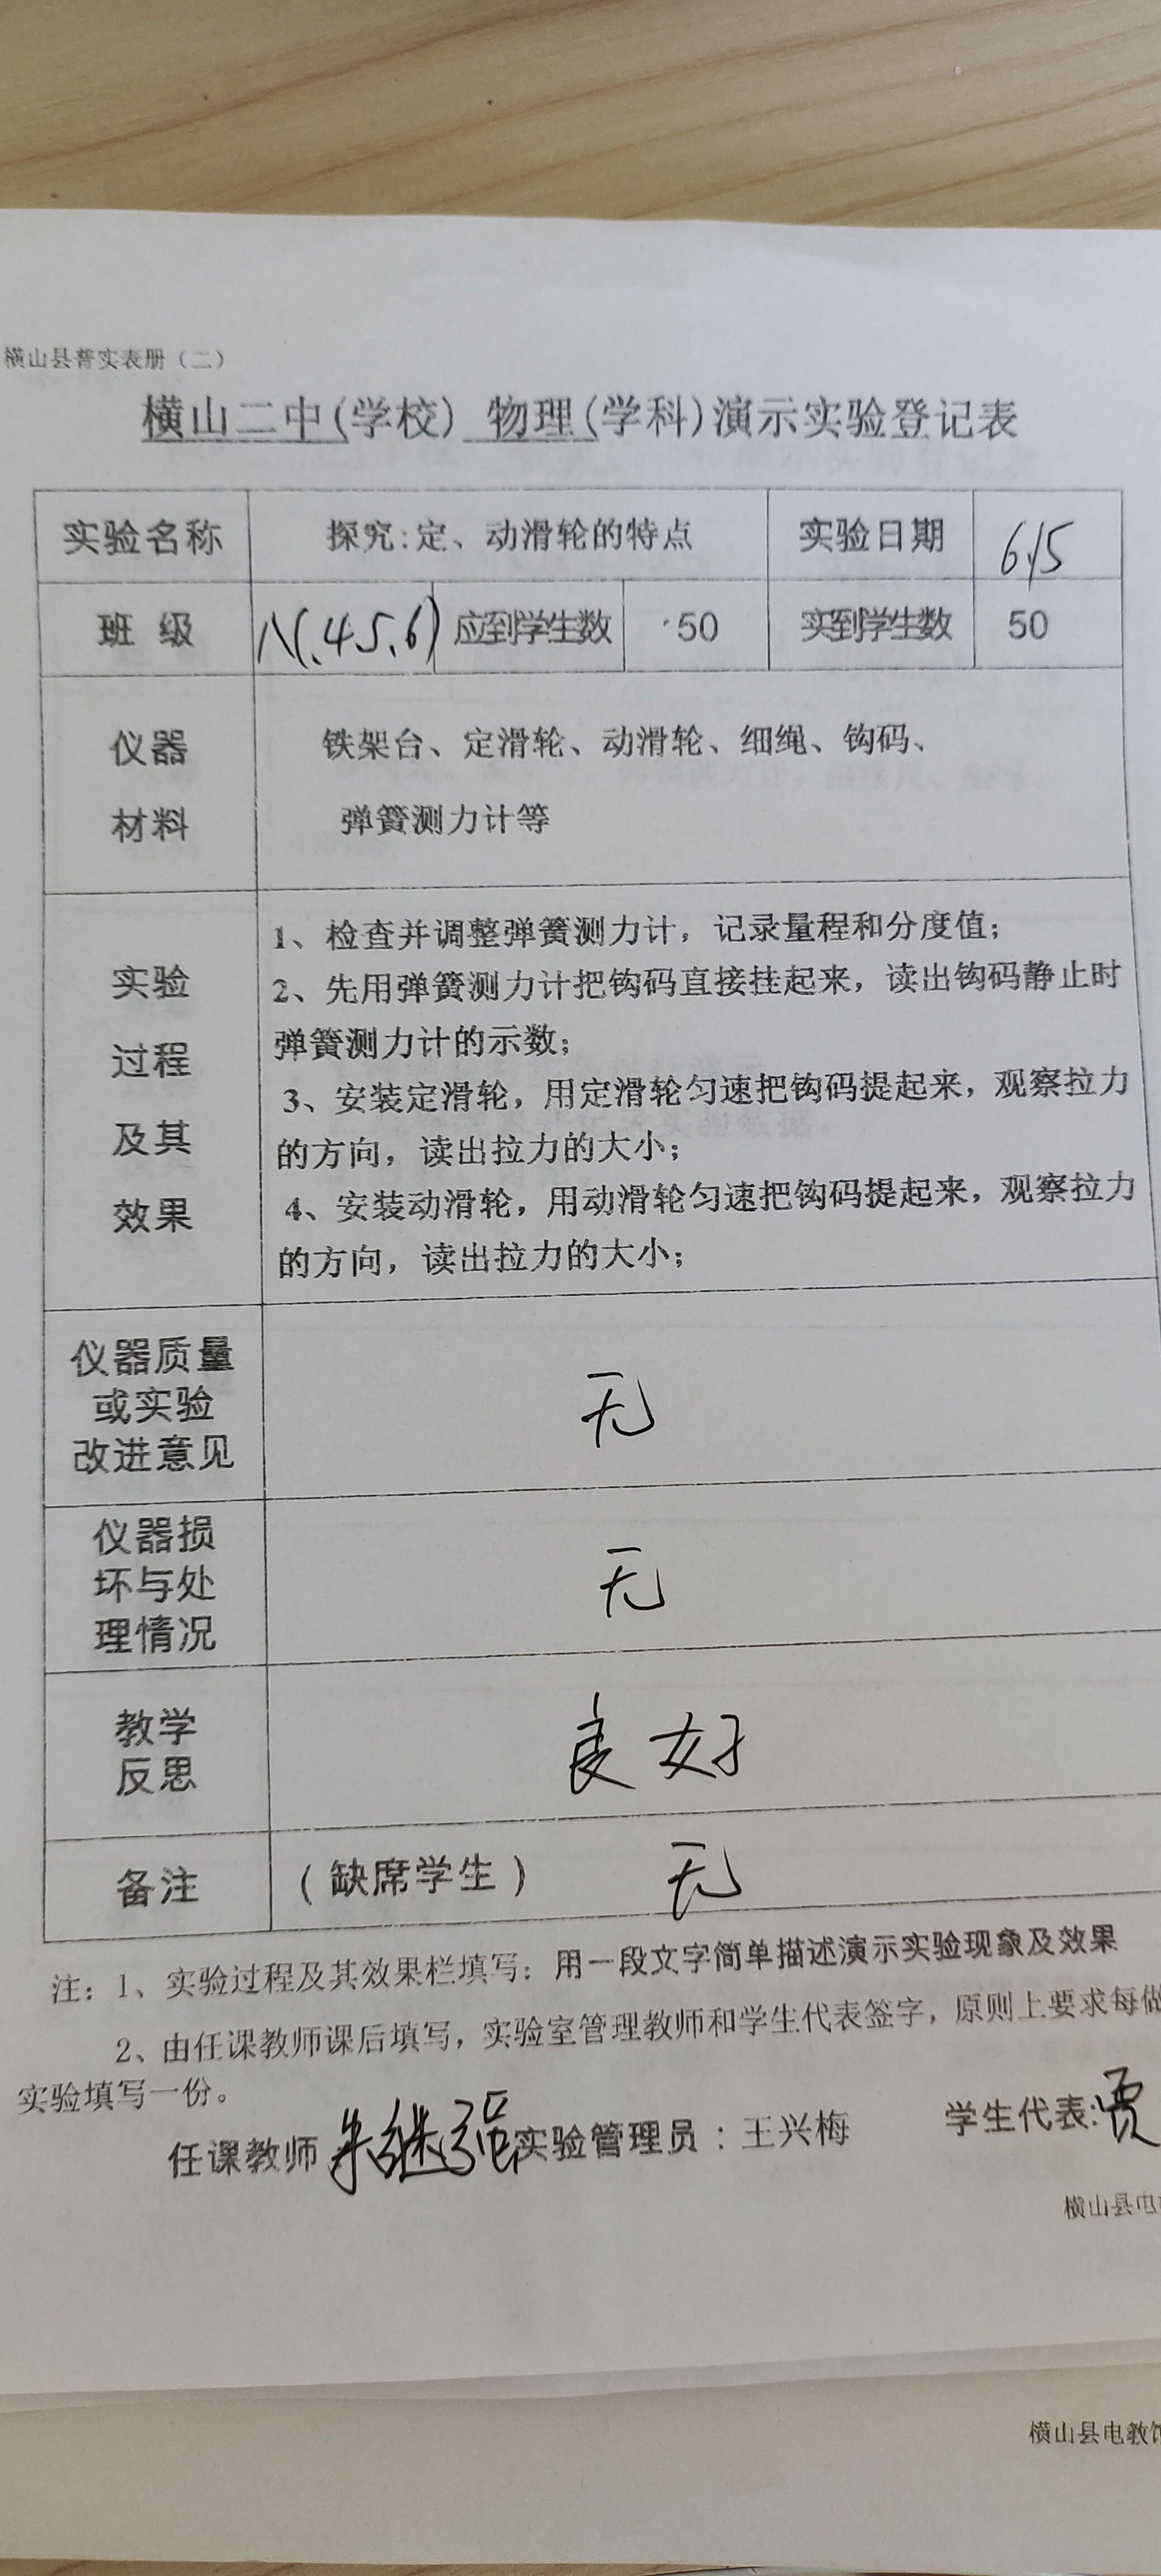 横山县普实表册（二）
横山二中(学校) 物理(学科)演示实验登记表
实验名称 探究:定、动滑轮的特点 实验日期 6.15
班 级 八(.4 5.6) 应到学生数 50 实到学生数 50
仪器 铁架台、定滑轮、动滑轮、细绳、钩码、
材料 弹簧测力计等
1、检查并调整弹簧测力计，记录量程和分度值；
实验 2、先用弹簧测力计把钩码直接挂起来，读出钩码静止时
过程 弹簧测力计的示数；
3、安装定滑轮，用定滑轮匀速把钩码提起来，观察拉力
及其 的方向，读出拉力的大小；
效果 4、安装动滑轮，用动滑轮匀速把钩码提起来，观察拉力
的方向，读出拉力的大小；
仪器质量
或实验 无
改进意见
仪器损
坏与处 无
理情况
教学 良好
反思
备注 （缺席学生） 无
注：1、实验过程及其效果栏填写：用一段文字简单描述演示实验现象及效果
2、由任课教师课后填写，实验室管理教师和学生代表签字，原则上要求每做
实验填写一份。
任课教师 朱继强 实验管理员：王兴梅 学生代表:贾
横山县电
横山县电教馆